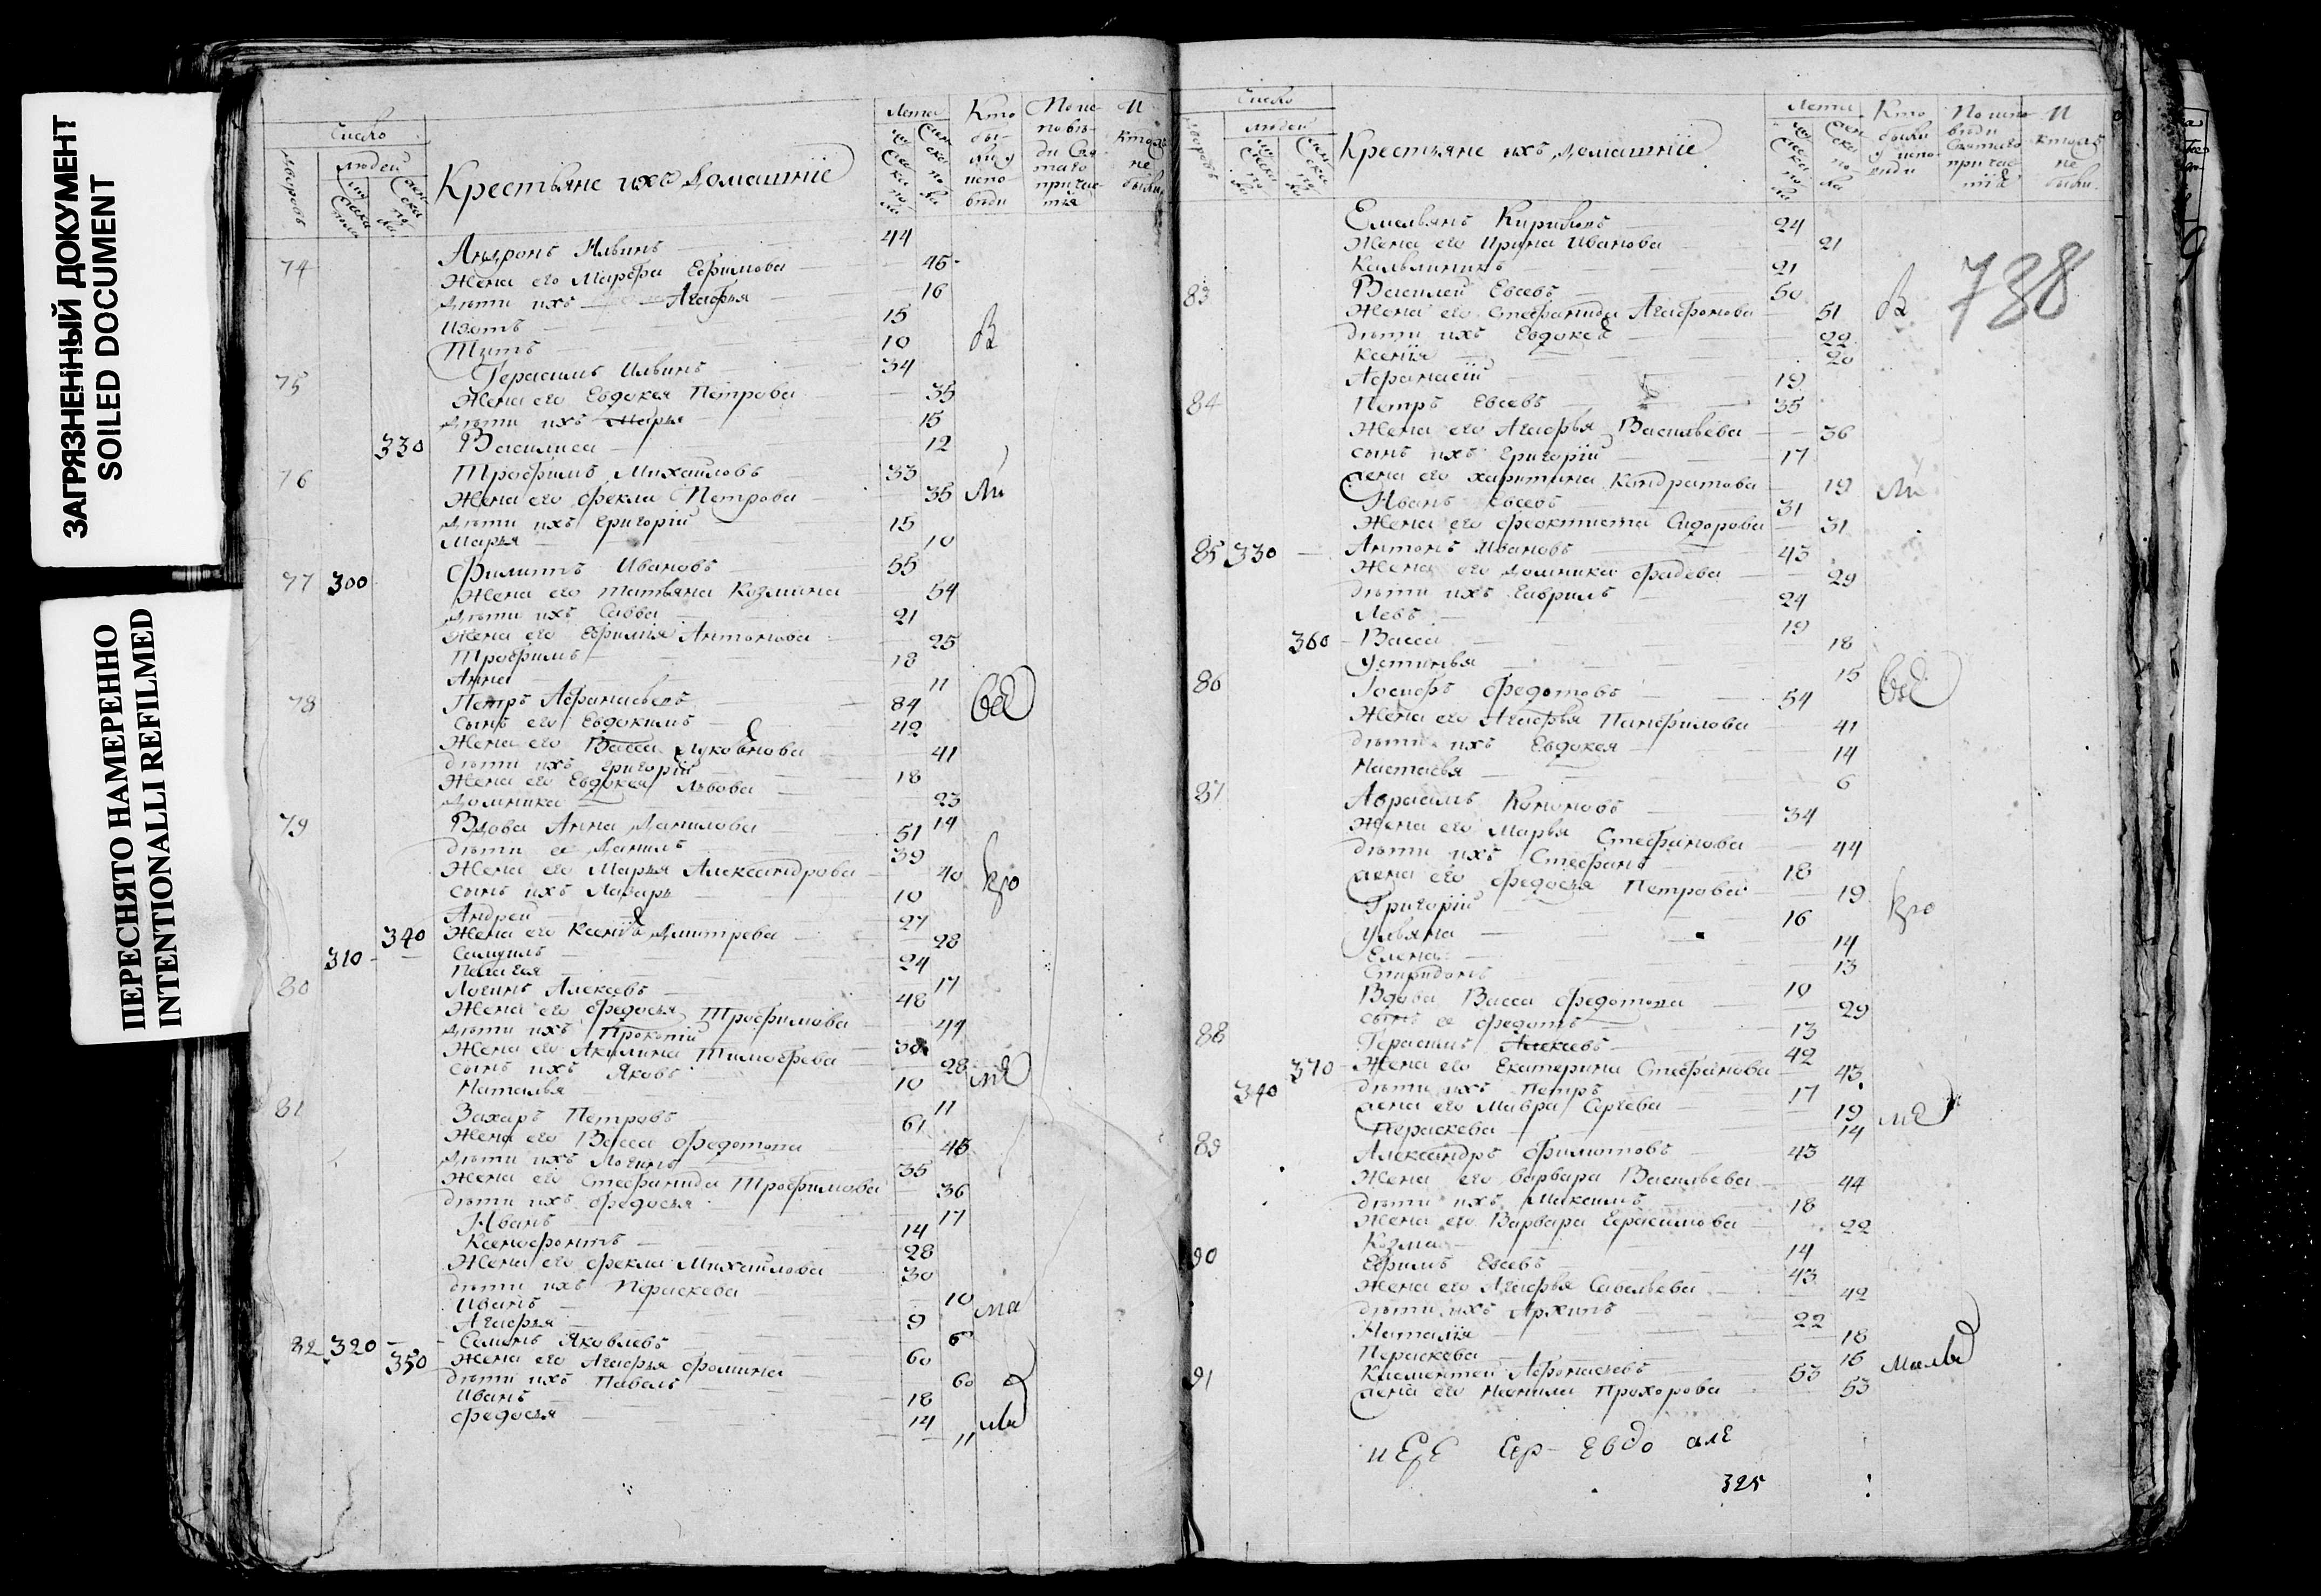 ЗАГРЯЗНЕННЫЙ ДОКУМЕНТ
SOILED DOCUMENT
ПЕРЕСНЯТО НАМЕРЕННО
INTENTIONALLI REFILMED
Число
людей
Крестьяне ихъ домашніе
Лета
74 Андронъ Ильинъ 44
Жена его Марѳа Ефимова 45
дѣти ихъ Агафья 16
Изотъ 15
Титъ 10
75 Герасимъ Ильинъ 34
Жена его Евдокея Петрова 35
дѣти ихъ Марья 15
330 Василиса 12
76 Трофимъ Михайловъ 33
Жена его Фекла Петрова 35
дѣти ихъ Григорій 15
Марья 10
77 300 Филиппъ Ивановъ 55
Жена его Татьяна Козмина 54
дѣти ихъ Савва 21
Жена его Ефимія Антонова 25
Трофимъ 18
Анна 11
78 Петръ Афанасьевъ 84
сынъ его Евдокимъ 42
Жена его Васса 41
дѣти ихъ Григорій 18
Жена его Евдокея Львова 23
Домника 14
79 Вдова Анна Данилова 51
дѣти ее Данилъ 39
Жена его Марья Александрова 40
сынъ ихъ Лазарь 10
Андрей 27
340 Жена его Ксенія Дмитрева 28
310 Самуилъ 24
Пелагея 17
80 Логинъ Алексеевъ 48
Жена его Федосья Трофимова 44
дѣти ихъ Прокопій
Жена его Акилина Тимофеева 28
сынъ ихъ Яковъ 10
Наталья 11
81 Захаръ Петровъ 61
Жена его Васса Федотова 45
дѣти ихъ Логинъ 35
Жена его Стефанида Трофимова 36
дѣти ихъ Федосья 17
Иванъ 14
Ксенофонтъ 28
Жена его Фекла Михайлова 30
дѣти ихъ Параскева 10
Иванъ 9
Агафья 6
82 320 Семенъ Яковлевъ 60
350 Жена его Агафья Фомина 60
дѣти ихъ Павелъ 18
Иванъ 14
Федосья 11
Число
людей
Крестьяне ихъ домашніе
Лета
738
Емельянъ Кириловъ 24
Жена его Ирина Иванова 21
21
83 Василей Евсевъ 50
Жена его Стефанида Агафонова 51
дѣти ихъ Евдокея 22
Ксенія 20
Афанасій 19
84 Петръ Евсевъ 35
Жена его Агафья Васильева 36
сынъ ихъ Григорій 17
жена его Харитина Кондратова 19
Иванъ Евсевъ 31
Жена его Феоктиста Сидорова 31
85 330 Антонъ Ивановъ 43
Жена его Домника Фадева 29
дѣти ихъ Гаврилъ 24
Левъ 19
360 Васса 18
Устинья 15
86 Іосифъ Федотовъ 54
Жена его Агафья Панфилова 41
дѣти ихъ Евдокея 14
Настасья 6
87 Авраамъ Кононовъ 34
Жена его Марья Стефанова 44
дѣти ихъ Стефанъ 18
жена его Федосья Петрова 19
Григорій 16
Ульяна 14
Елена 13
Спиридонъ 10
Вдова Васса Федотова 29
сынъ ее Федотъ 13
88 Герасимъ Алексеевъ 42
370 Жена его Екатерина Стефанова 43
340 дѣти ихъ Петръ 17
жена его Мавра Сергева 19
Параскева 14
89 Александръ Филатовъ 43
Жена его Варвара Васильева 44
дѣти ихъ Максимъ 18
Жена его Варвара Герасимова 22
Козма 14
90 Ефимъ Евсевъ 43
Жена его Агафья Савельева 42
дѣти ихъ Архипъ 22
Наталія 18
Параскева 16
91 Климентей Афонасьевъ 53
жена его Неонила Прохорова 53
325